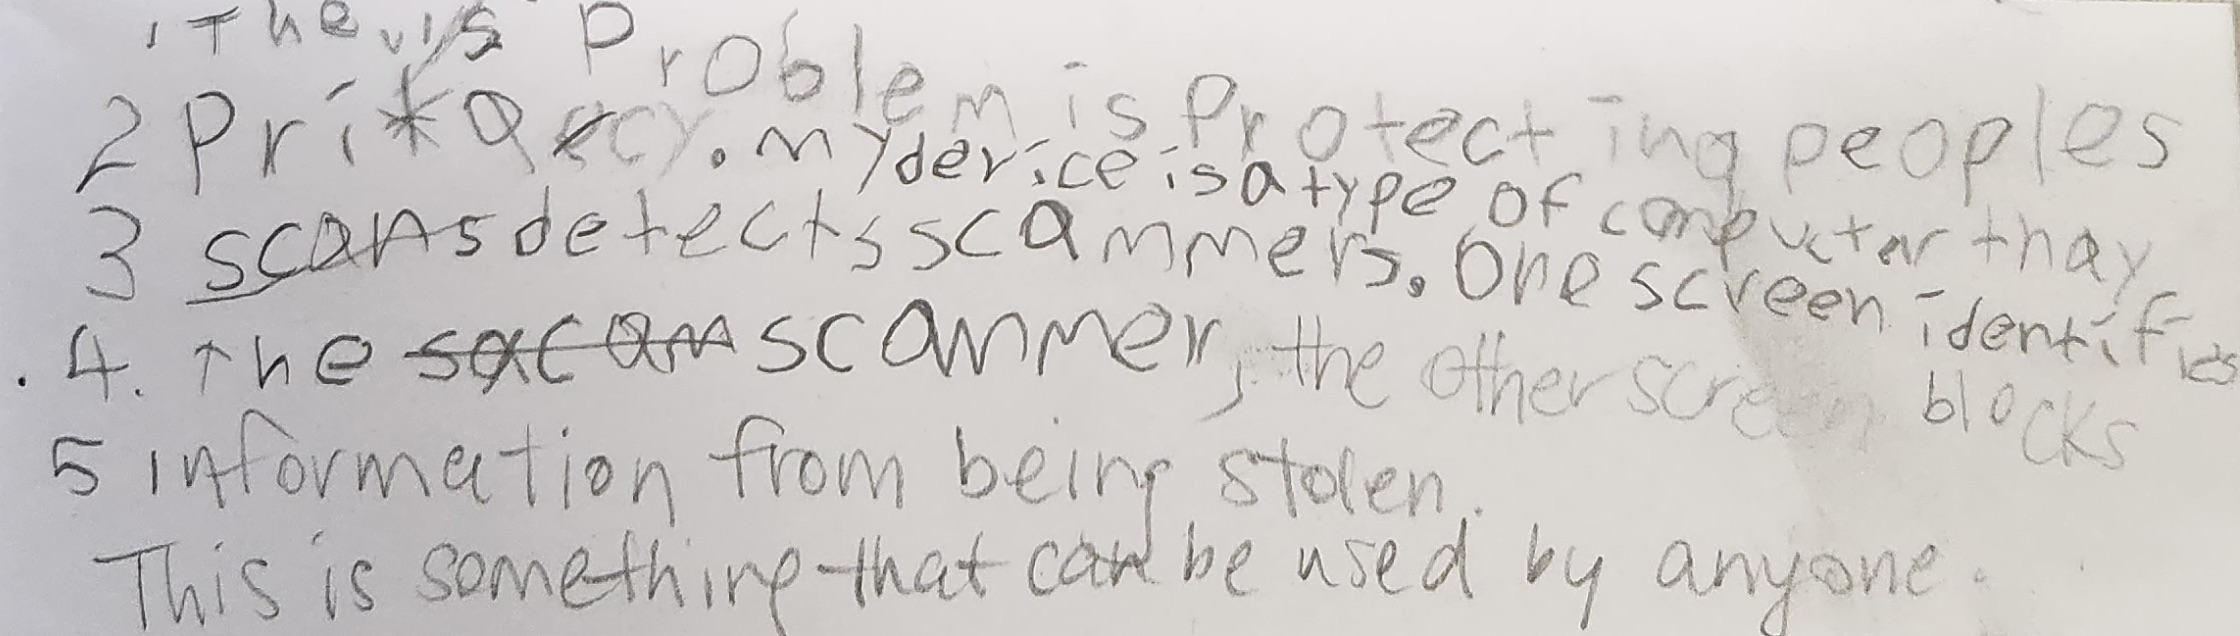 1 The Problem is Protecting peoples
2 Privacy. my device is a type of computer thay
3 scans detects scammers. One screen identifies
. 4. The scammer, the other screen blocks
5 information from being stolen.
This is something that can be used by anyone.